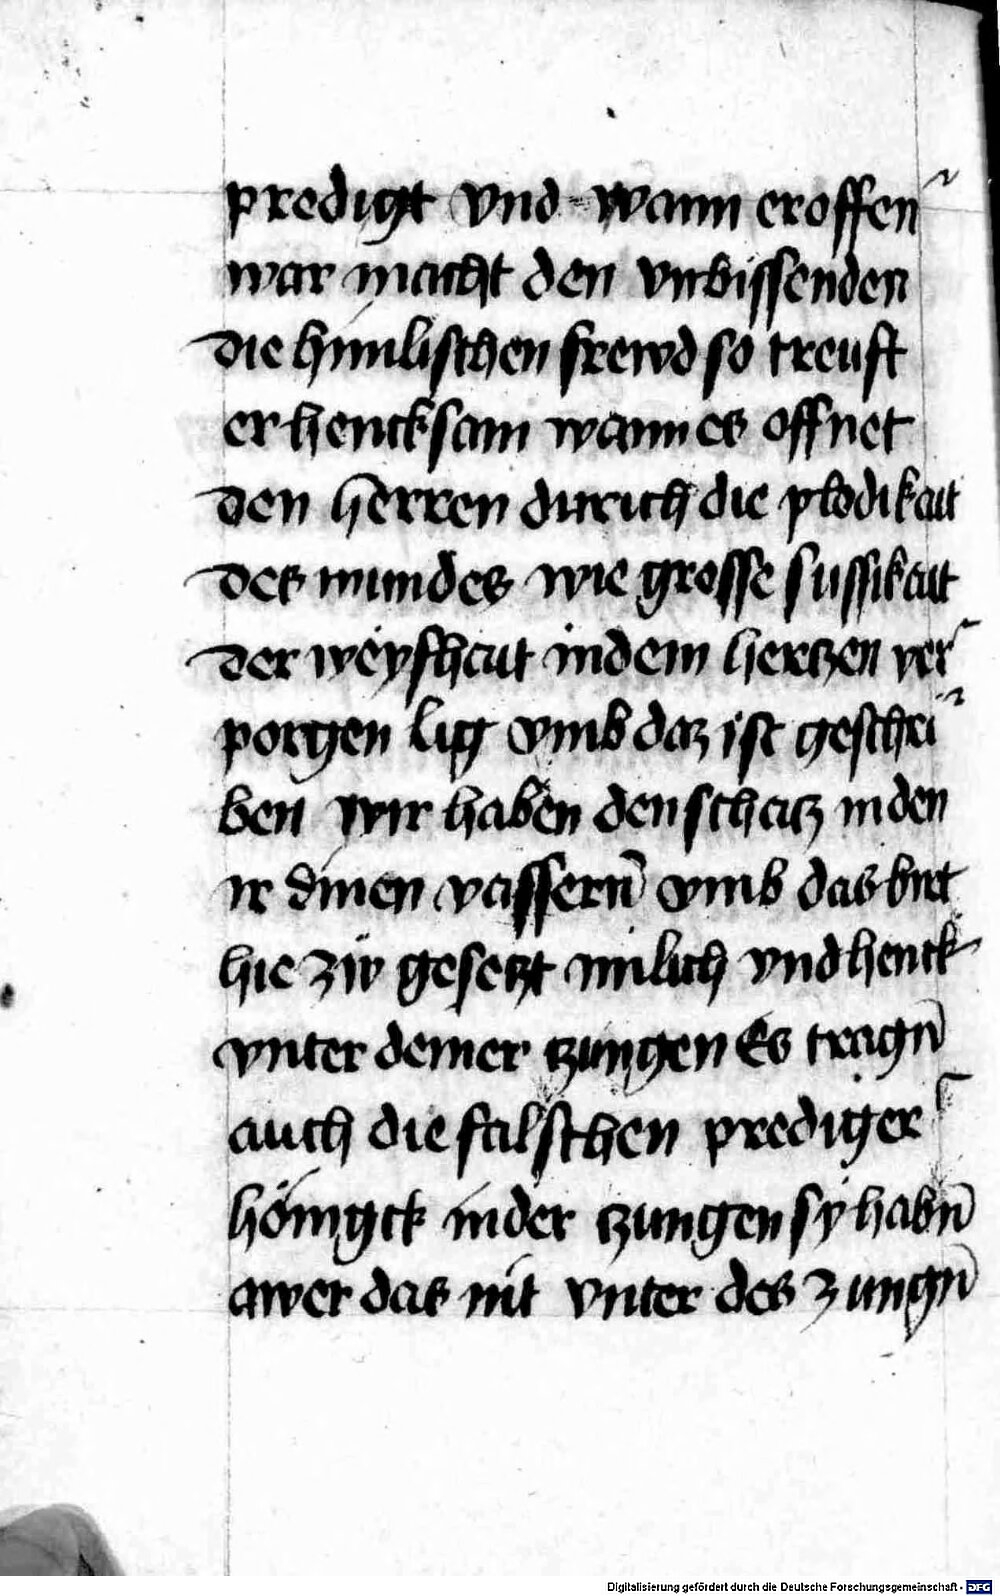 predigt vnd wann er offen
war macht den vnbissenden
die himlischen frewd so treuft
er hencksam wann es offnet
den herren durich die plodikait
des mundes wie grosse sussikait
der weyshait in dem hertzen ver
porgen lig vmb daz ist geschri
ben wir haben den schatz in den
ir dinen vassern vmb das birt
hie zw gesetzt milich vnd henck
vnter deiner tzungen Es tragn̄
auch die falschen prediger
hönigck in der tzungen sy habn̄
awer das nit vnter des zungn̄
Digitalisierung gefördert durch die Deutsche Forschungsgemeinschaft - DFG